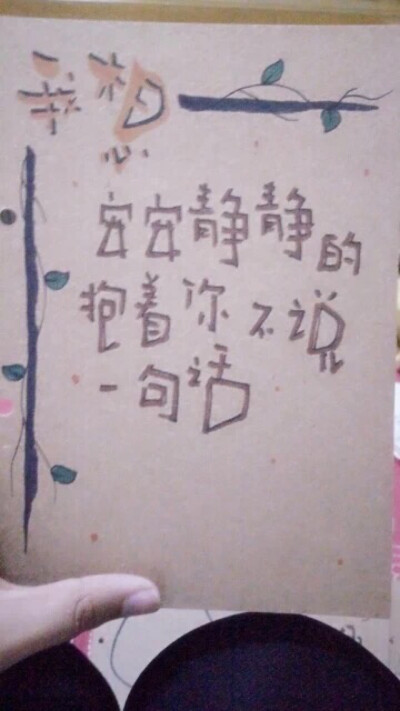 我想
安安静静的
抱着你不说
一句话